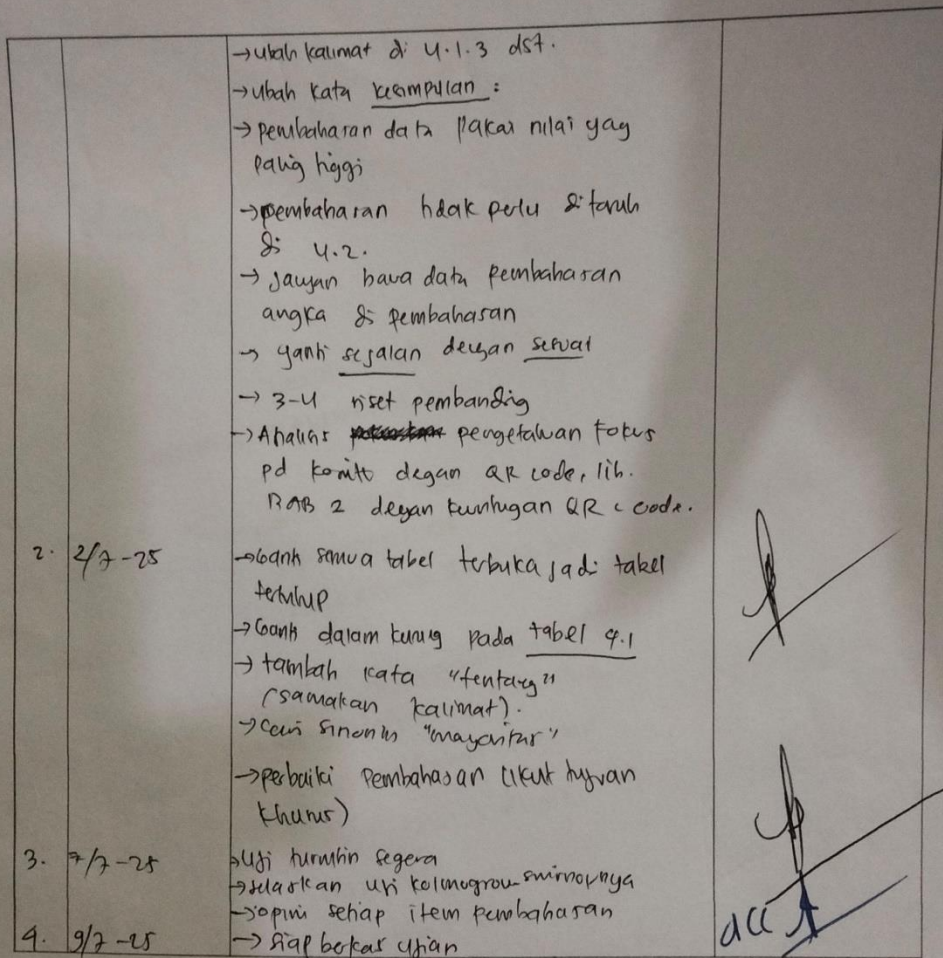 → ubah kalimat di 4.1.3 dst.
→ ubah kata kesimpulan :
→ pembahasan data pakai nilai yag
palig tiggi
→ pembahasan tidak perlu ditaruh
di 4.2.
→ jangan bawa data pembahasan
angka di pembahasan
→ ganti sejalan dengan sesuai
→ 3-4 riset pembandig
→ Analisis pengetahuan fokus
pd komik degan QR code, lih.
BAB 2 degan QR code.
2. 2/7-25 → Ganti semua tabel terbuka jadi tabel
tertutup
→ Ganti dalam kurug pada tabel 4.1
→ tambah kata "tentang"
(samakan kalimat).
→ cari sinonim "mayoritas"
→ perbaiki pembahasan (ikut tujuan
khusus)
3. 7/7-25 → Uji turnitin segera
→ selaskan uji kolmogrov smirnovnya
→ opini setiap item pembahasan
4. 9/7-25 → siap berkas ujian acc